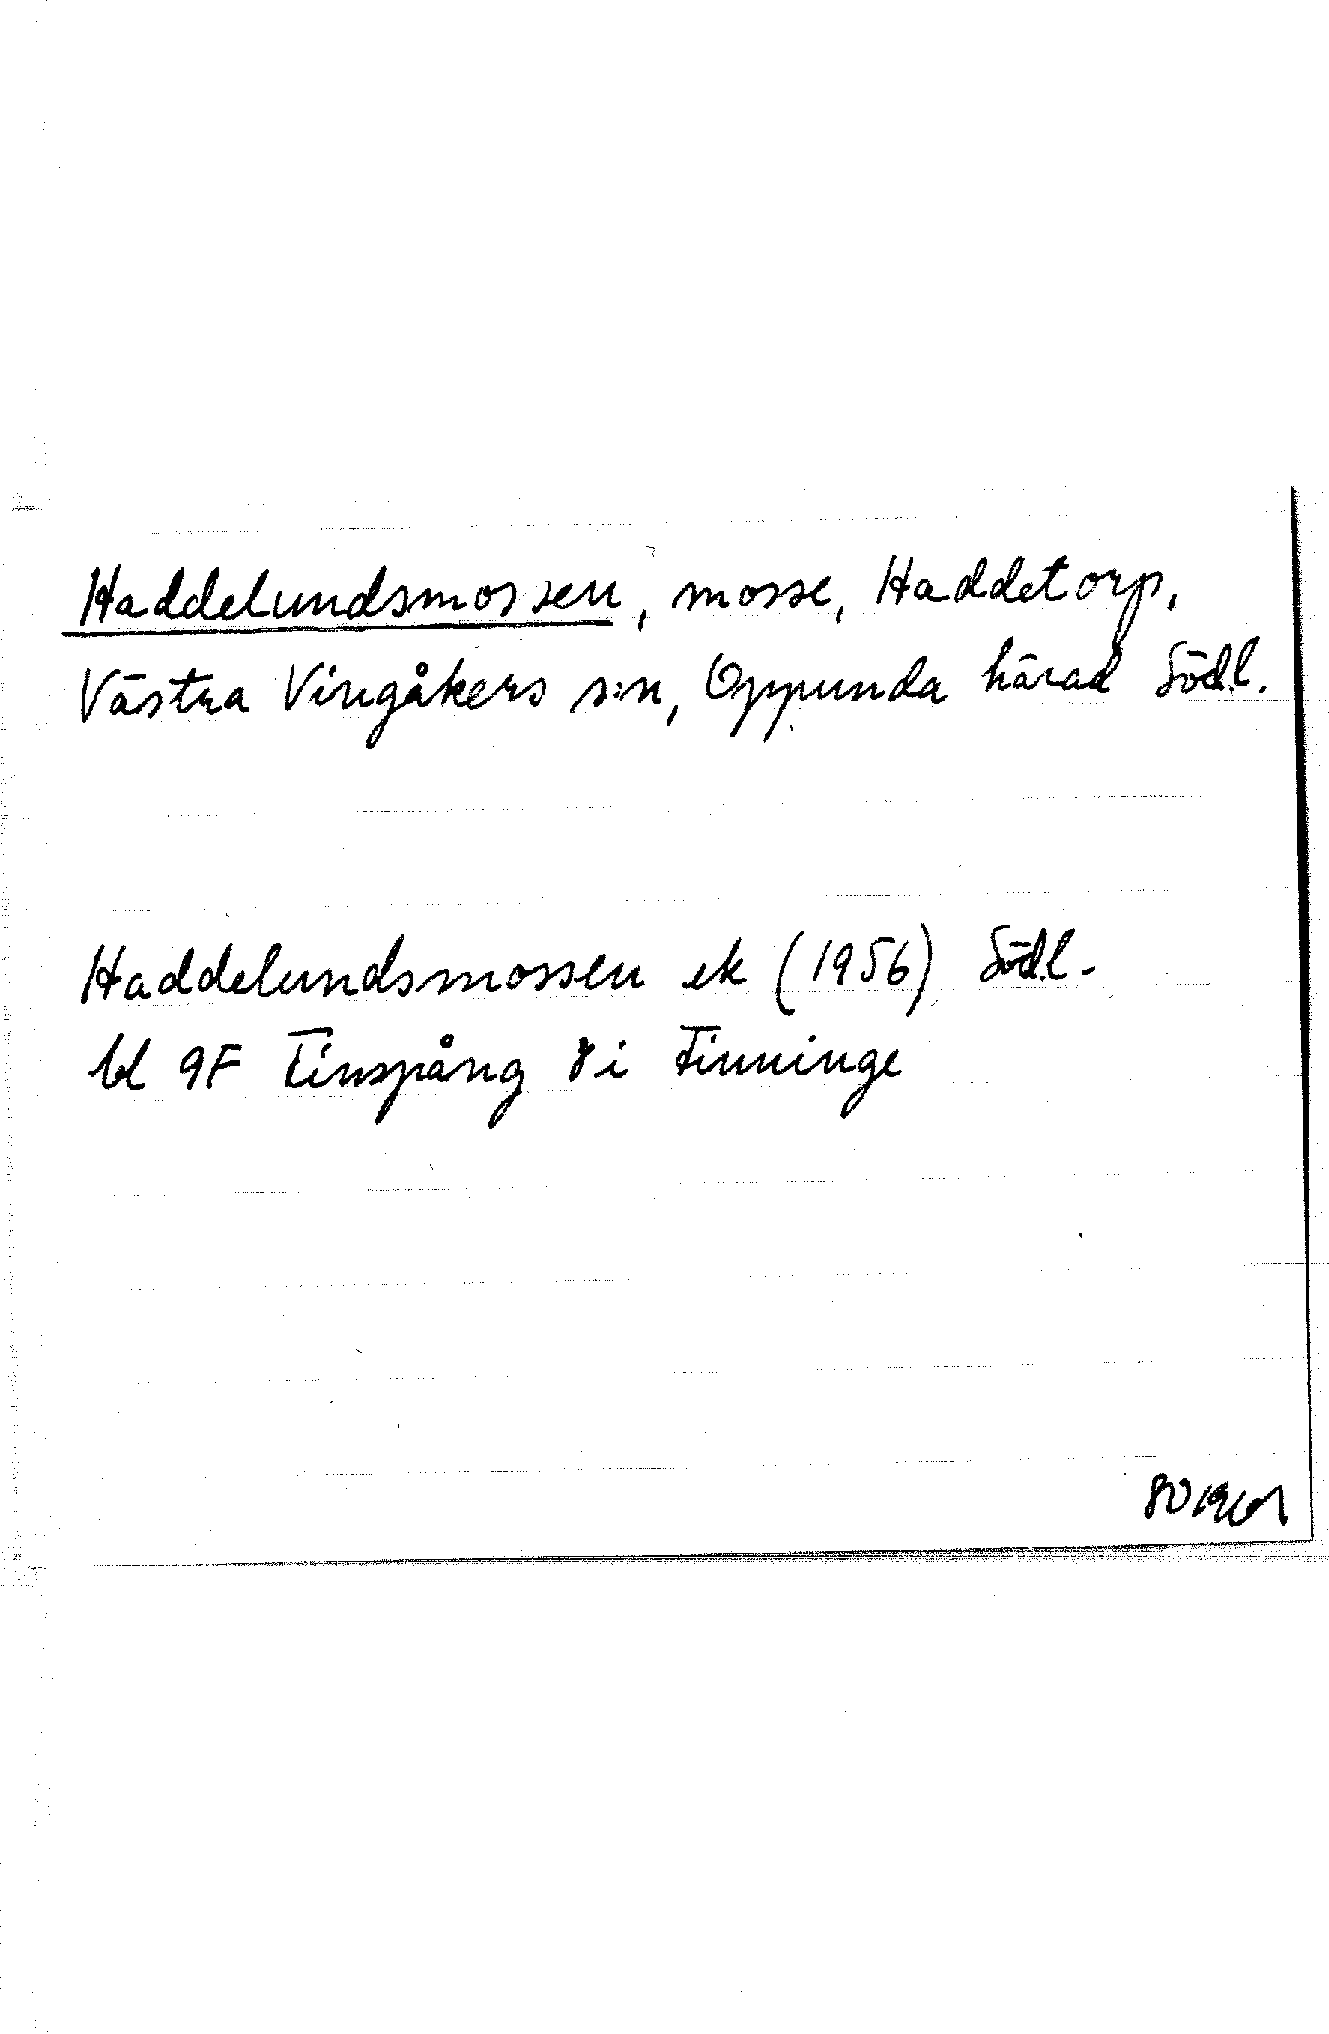 Haddelundsmossen, mosse, Haddetorp,
Västra Vingåkers s:n, Oppunda härad Södl.
Haddelundsmossen ek (1956) Södl.
bl 9F Finspång 8 i Finninge